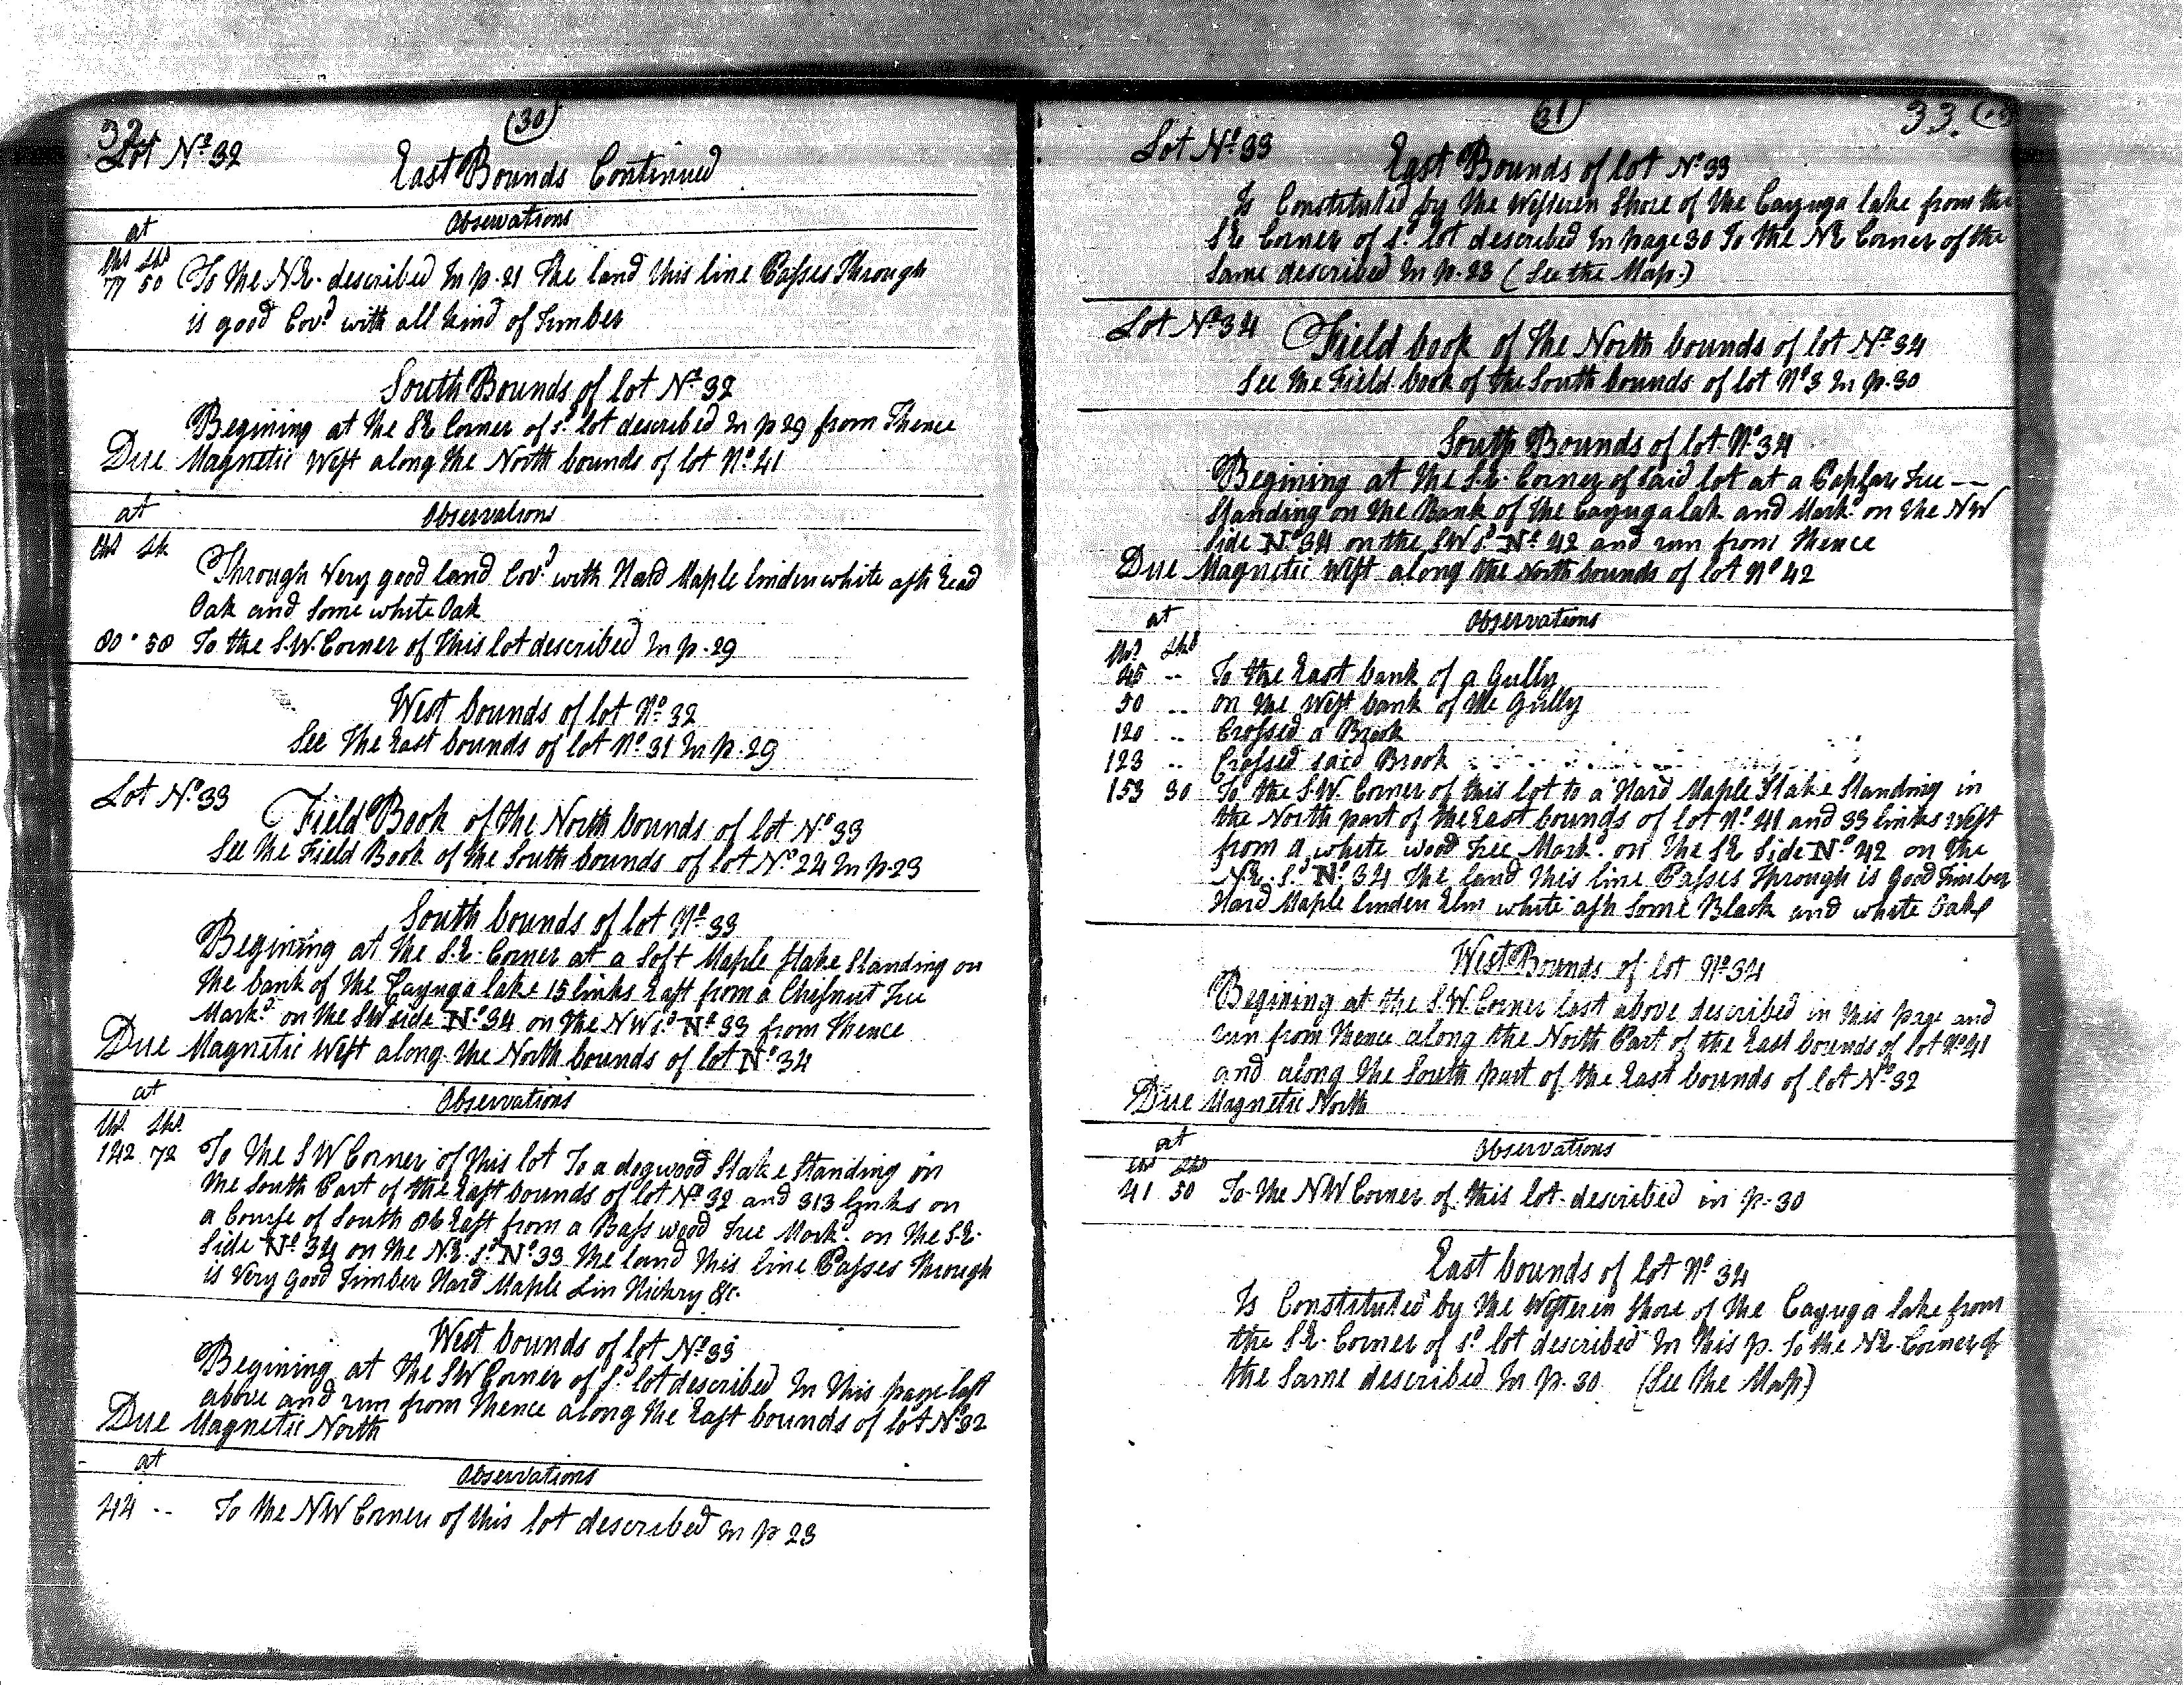 32.
(30)
Lot Nº 32
East Bounds Continued
at Observations
Chs Lks
77 50 To the N.E. described In p. 21 The land this line Passes Through
is good Covd with all kind of Timber
South Bounds of lot Nº 32
Begining at the S.E. Corner of sd lot described In p 29 from Thence
Due Magnetic West along the North bounds of lot Nº 41
at Observations
Chs Lk
Through Very good land Covd with Hard Maple linden white ash Read
Oak and Some white Oak
80 · 50 To the S.W. Corner of this lot described In p. 29
West bounds of lot Nº 32
See The East bounds of lot Nº 31 In p. 29
Lot Nº 33
Field Book of the North bounds of lot Nº 33
See the Field Book of the South bounds of lot Nº 24 In p. 23
South bounds of lot Nº 33
Begining at the S.E. Corner at a Soft Maple Stake Standing on
the bank of the Cayuga lake 15 links East from a Chesnut Tree
Markd on the SW side Nº 34 on the NW sd Nº 33 from thence
Due Magnetic West along the North bounds of lot Nº 34
at Observations
Chs Lks
142 72 To the SW Corner of this lot To a dogwood Stake Standing in
the South Part of the East bounds of lot Nº 32 and 313 links on
a Course of South 86 East from a Bass wood Tree Markd on the S.E.
Side Nº 34 on the N.E. sd Nº 33 the land this line Passes Through
is Very good Timber Hard Maple Lin Hickry &c.
West bounds of lot Nº 33
Begining at the SW Corner of sd lot described In this page last
above and run from thence along the East bounds of lot Nº 32
Due Magnetic North
at Observations
44 -- To the NW Corner of this lot described In p 23
(31)
33.
Lot Nº 33
East Bounds of lot Nº 33
Is Constituted by the Westeren Shore of the Cayuga lake from the
S.E. Corner of sd lot described In page 30 To the N.E. Corner of the
Same described In p. 23 (See the Map.)
Lot Nº 34
Field book of the North bounds of lot Nº 34
See the Field book of the South bounds of lot Nº 3 In p. 30
South Bounds of lot Nº 34
Begining at the S.E. Corner of Said lot at a Poplar Tree --
Standing on the Bank of the Cayuga lak and Markd on the NW
Side Nº 34 on the SW sd Nº 42 and run from thence
Due Magnetic West along the North bounds of lot Nº 42
at Observations
Chs Lks
45 -- To the East bank of a Gully
50 -- on the West bank of the Gully
120 -- Crossed a Brook
123 -- Crossed said Brook
153 30 To the S.W. Corner of this lot to a Hard Maple Stake Standing in
the North part of the East bounds of lot Nº 41 and 33 links West
from a white wood Tree Markd on the S.E. Side Nº 42 on the
N.E. sd Nº 34 the land this line Passes Through is good Timber
Hard Maple linden Elm white ash Some Black and white Oaks
West Bounds of lot Nº 34
Begining at the S.W. Corner last above described in this page and
run from thence along the North Part of the East bounds of lot Nº 41
and along the South part of the East bounds of lot Nº 32
Due Magnetic North
at Observations
Chs Lks
41 50 To the NW Corner of this lot described in p. 30
East bounds of lot Nº 34
Is Constituted by the Westeren Shore of the Cayuga lake from
the S.E. Corner of sd lot described In this p. To the N.E. Corner of
the Same described In p. 30 (See the Map)